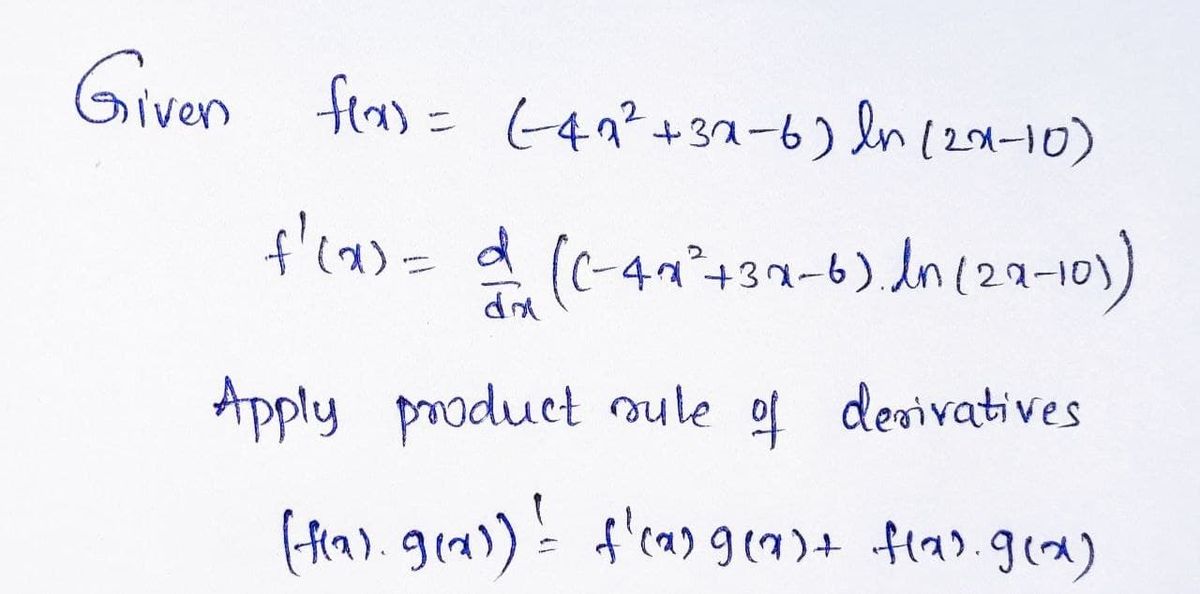 Given f(x) = (-4x²+3x-6) ln (2x-10)
f'(x) = d/dx ((-4x²+3x-6). ln (2x-10))
Apply product rule of derivatives
(f(x). g(x))' = f'(x) g(x) + f(x). g(x)